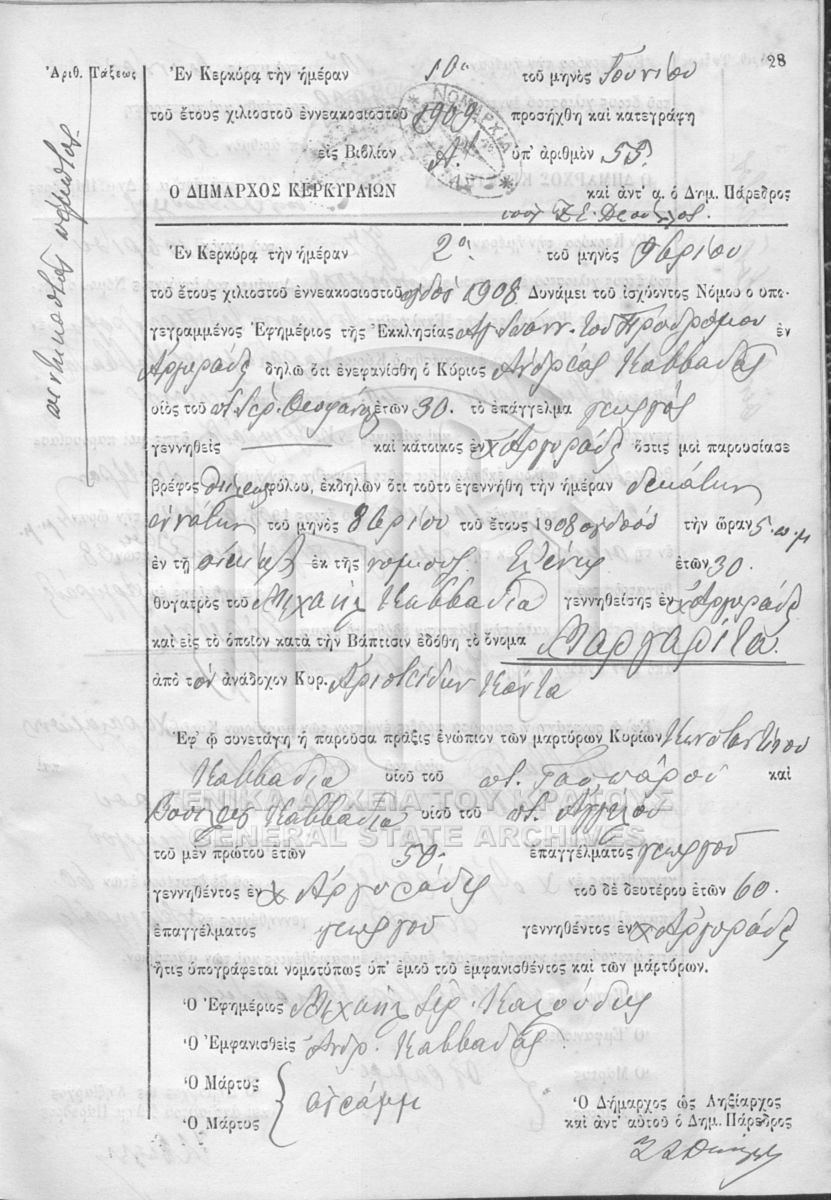 28
Ἀριθ. Τάξεως
Ἐν Κερκύρᾳ τὴν ἡμέραν 10ῃ τοῦ μηνὸς Ἰουνίου
τοῦ ἔτους χιλιοστοῦ ἐννεακοσιοστοῦ 1909 προσήχθη καὶ κατεγράφη
εἰς Βιβλίον Α. ὑπ' ἀριθμὸν 55.
ΝΟΜΑΡΧΙΑ
Ὁ ΔΗΜΑΡΧΟΣ ΚΕΡΚΥΡΑΙΩΝ καὶ ἀντ' α. ὁ Δημ. Πάρεδρος
Ἐν Κερκύρᾳ τὴν ἡμέραν 2ᾳ τοῦ μηνὸς 9βρίου
τοῦ ἔτους χιλιοστοῦ ἐννεακοσιοστοῦ ὀγδόου 1908 Δυνάμει τοῦ ἰσχύοντος Νόμου ο υπο-
γεγραμμένος Ἐφημέριος τῆς Ἐκκλησίας Ἁγ. Ἰωάν. τοῦ Προδρόμου ἐν
Ἀργυράδες δηλῶ ὅτι ἐνεφανίσθη ὁ Κύριος Ἀνδρέας Καββαδᾶς
υἱὸς τοῦ π. Ἱερ. Θεοφάνη ἐτῶν 30. τὸ ἐπάγγελμα γεωργός
γεννηθεὶς καὶ κάτοικος ἐν χ Ἀργυράδες ὅστις μοὶ παρουσίασε
βρέφος θήλεος φύλου, ἐκδηλῶν ὅτι τοῦτο ἐγεννήθη τὴν ἡμέραν δεκάτην
ἐννάτην τοῦ μηνὸς 8βρίου τοῦ ἔτους 1908 ὀγδόου τὴν ὥραν 5. π. μ
ἐν τῇ οἰκίᾳ ἐκ τῆς νομίμου Ἑλένης ἐτῶν 30.
θυγατρὸς τοῦ Μιχαὴλ Καββαδία γεννηθείσης ἐν χ Ἀργυράδες
καὶ εἰς τὸ ὁποῖον κατὰ τὴν Βάπτισιν ἐδόθη τὸ ὄνομα Μαργαρίτα.
ἀπὸ τὸν ἀνάδοχον Κυρ. Ἀριστείδην Κάντα
Ἐφ' ᾧ συνετάγη ἡ παροῦσα πρᾶξις ἐνώπιον τῶν μαρτύρων Κυρίων Κωνσταντίνου
Καββαδία υἱοῦ τοῦ π. Γασπάρου καὶ
Καββαδία υἱοῦ τοῦ π. Ἀγγέλου
ΓΕΝΙΚΑ ΑΡΧΕΙΑ ΤΟΥ ΚΡΑΤΟΥΣ
GENERAL STATE ARCHIVES
τοῦ μὲν πρώτου ἐτῶν 50. ἐπαγγέλματος γεωργοῦ
γεννηθέντος ἐν χ Ἀργυράδες τοῦ δὲ δευτέρου ἐτῶν 60.
ἐπαγγέλματος γεωργοῦ γεννηθέντος ἐν χ Ἀργυράδες
ἥτις ὑπογράφεται νομοτύπως ὑπ' ἐμοῦ τοῦ ἐμφανισθέντος καὶ τῶν μαρτύρων.
Ὁ Ἐφημέριος Μιχαὴλ ἱερ. Καλούδης
Ὁ Ἐμφανισθεὶς Ἀνδρ. Καββαδᾶς
Ὁ Μάρτυς
ἀγράμμ
Ὁ Μάρτυς
Ὁ Δήμαρχος ὡς Ληξίαρχος
καὶ ἀντ' αὐτοῦ ὁ Δημ. Πάρεδρος